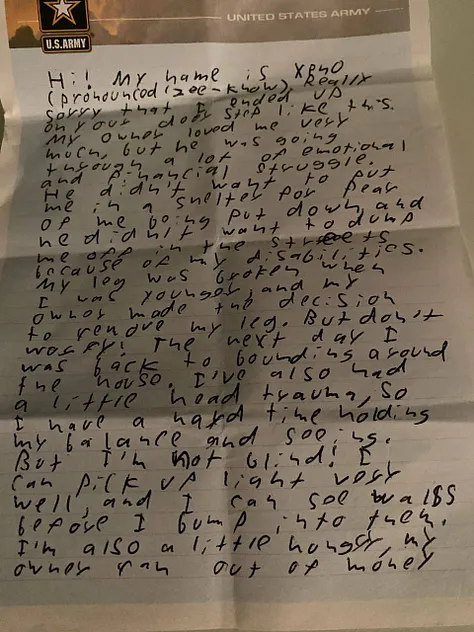 UNITED STATES ARMY
U.S.ARMY
Hi! My name is Xeno
(pronounced (zee-know). Really
sorry that I ended up
on your door step like this.
My owner loved me very
much, but he was going
through a lot of emotional
and financial struggle.
He didn't want to put
me in a shelter for fear
of me being put down, and
he didn't want to dump
me off in the streets
because of my disabilities.
My leg was broken when
I was younger, and my
owner made the decision
to remove my leg. But don't
worry! The next day I
was back to bounding around
the house. I've also had
a little head trauma, so
I have a hard time holding
my balance and seeing.
But I'm not blind! I
can pick up light very
well, and I can see walls
before I bump into them.
I'm also a little hungry, my
owner ran out of money